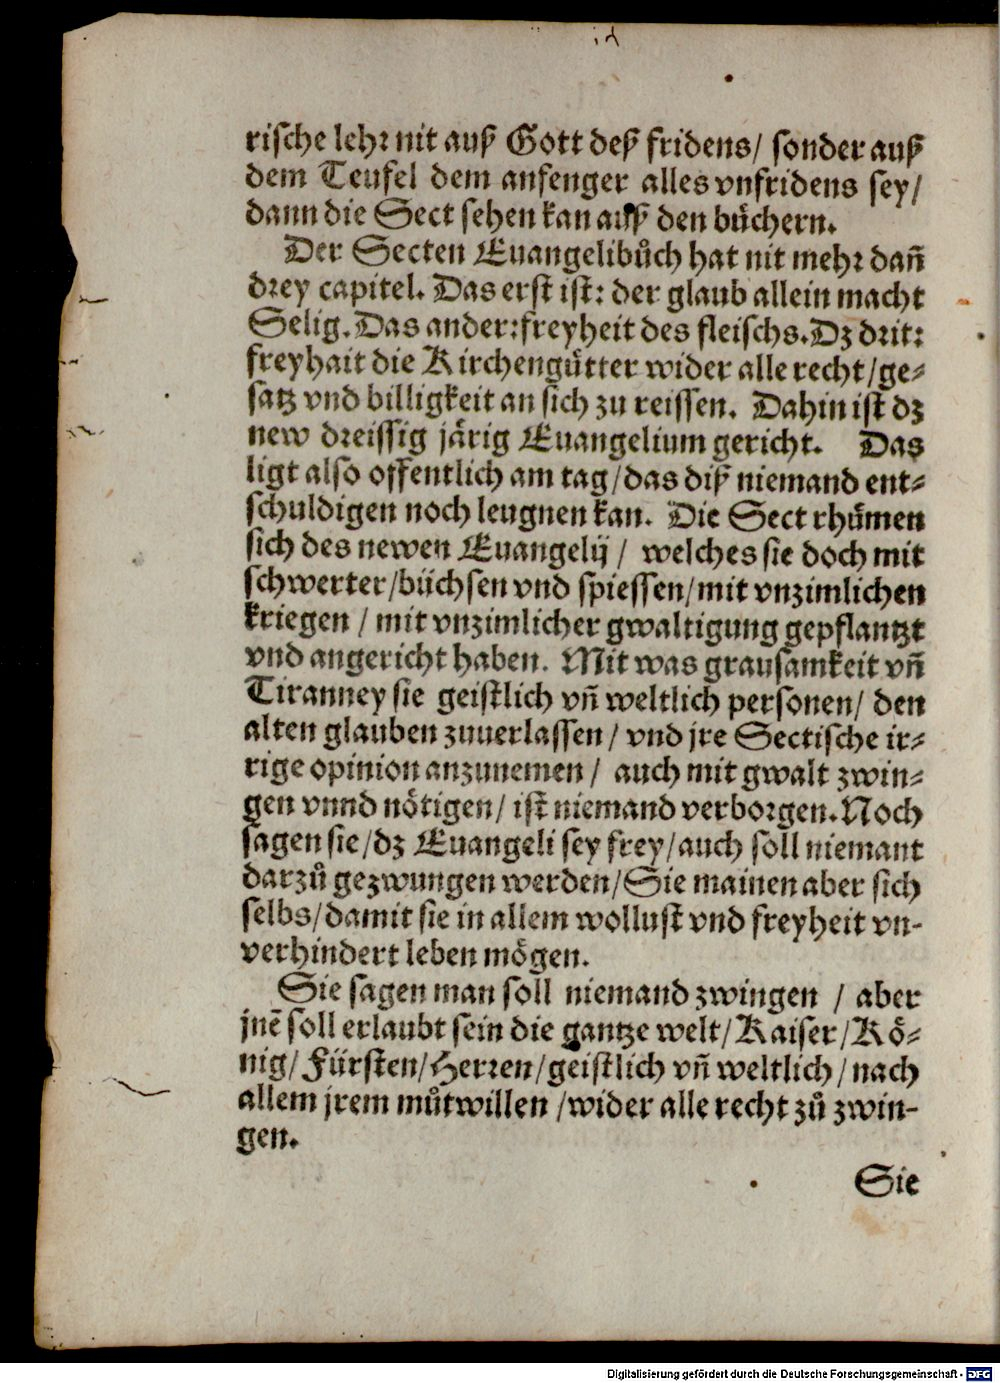 rische lehr nit auß Gott deß fridens/ sonder auß
dem Teufel dem anfenger alles vnfridens sey/
dann die Sect sehen kan auß den bůchern.
Der Secten Euangelibůch hat nit mehr dañ
drey capitel. Das erst ist: der glaub allein macht
Selig. Das ander: freyheit des fleischs. Dz drit:
freyhait die Kirchengůtter wider alle recht/ge⸗
satz vnd billigkeit an sich zu reissen. Dahin ist dz
new dreissig järig Euangelium gericht. Das
ligt also offentlich am tag/das diß niemand ent⸗
schuldigen noch leugnen kan. Die Sect rhůmen
sich des newen Euangelij/ welches sie doch mit
schwerter/büchsen vnd spiessen/mit vnzimlichen
kriegen / mit vnzimlicher gwaltigung gepflantzt
vnd angericht haben. Mit was grausamkeit vñ
Tiranney sie geistlich vñ weltlich personen/ den
alten glauben zuuerlassen / vnd jre Sectische ir⸗
rige opinion anzunemen / auch mit gwalt zwin⸗
gen vnnd nötigen/ ist niemand verborgen. Noch
sagen sie/dz Euangeli sey frey/auch soll niemant
darzů gezwungen werden/Sie mainen aber sich
selbs/damit sie in allem wollust vnd freyheit vn-
verhindert leben mögen.
Sie sagen man soll niemand zwingen / aber
jnẽ soll erlaubt sein die gantze welt/Kaiser/Kö⸗
nig/Fürsten/Herren/geistlich vñ weltlich/nach
allem jrem můtwillen /wider alle recht zů zwin-
gen.
Sie
Digitalisierung gefördert durch die Deutsche Forschungsgemeinschaft - DFG